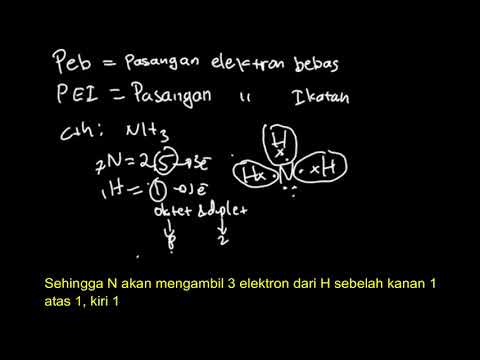 Peb = Pasangan elektron bebas
PEI = Pasangan " Ikatan
Cth: NH3
7N = 2 5 → 3e
1H = 1 → 1e
octet & duplet
8 2
H
x
Hx · N · xH
Sehingga N akan mengambil 3 elektron dari H sebelah kanan 1
atas 1, kiri 1